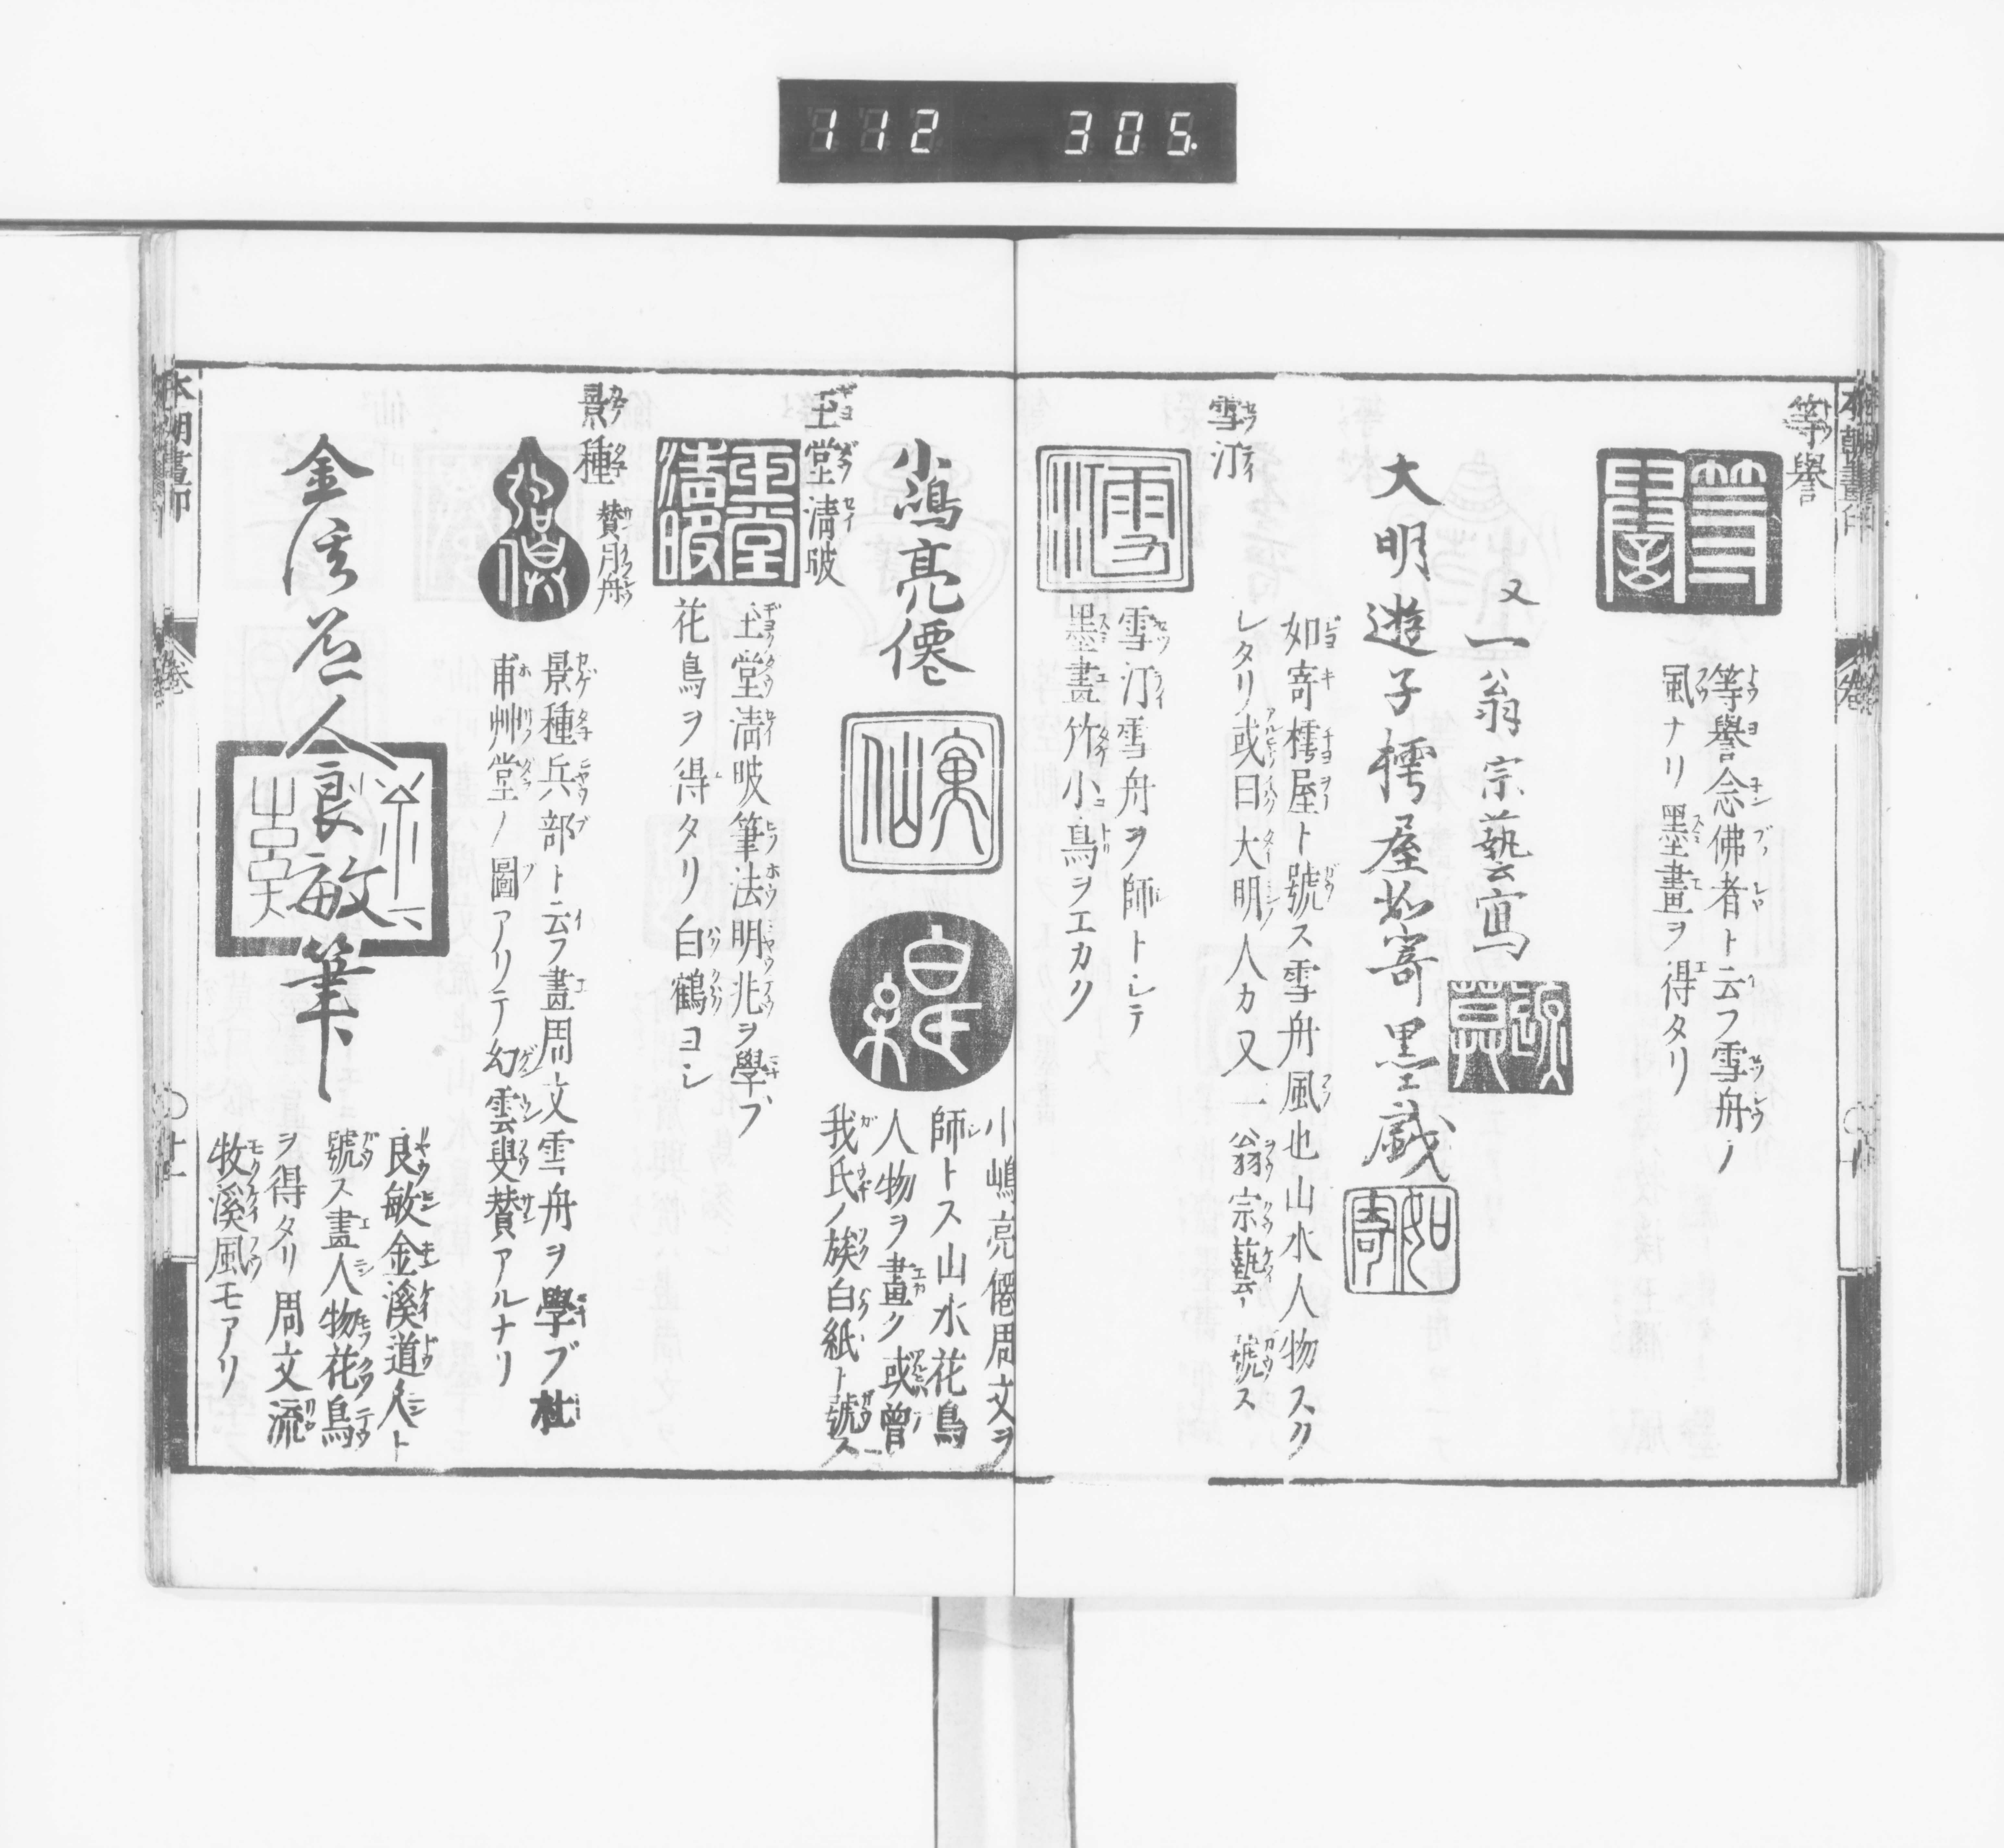 112 305.
等譽
等譽
等譽念佛者ト云フ雪舟ノ
風ナリ墨畫ヲ得タリ
又
一翁宗藝寫
大明遊子樗屋如寄墨戯
如寄
如寄樗屋ト號ス雪舟風也山水人物スク
レタリ或曰大明人カ又一翁宗藝ト號ス
雪汀
雪汀
雪汀雪舟ヲ師トシテ
墨畫竹小鳥ヲエカク
小嶋亮僊
亮仙
白紙
小嶋亮僊周文ヲ
師トス山水花鳥
人物ヲ畫ク或曾
我氏ノ族白紙ト號ス
玉堂清㫰
玉堂清㫰
玉堂清㫰筆法明兆ヲ學ブ
花鳥ヲ得タリ白鶴ヨシ
景種 賛月舟
景種兵部ト云フ畫周文雪舟ヲ學ブ杜
甫艸堂ノ圖アリテ幻雲叟賛アルナリ
金溪道人良敏筆
良敏金溪道人ト
號ス畫人物花鳥
ヲ得タリ周文流
牧溪風モアリ
本朝畫印
卷
十一